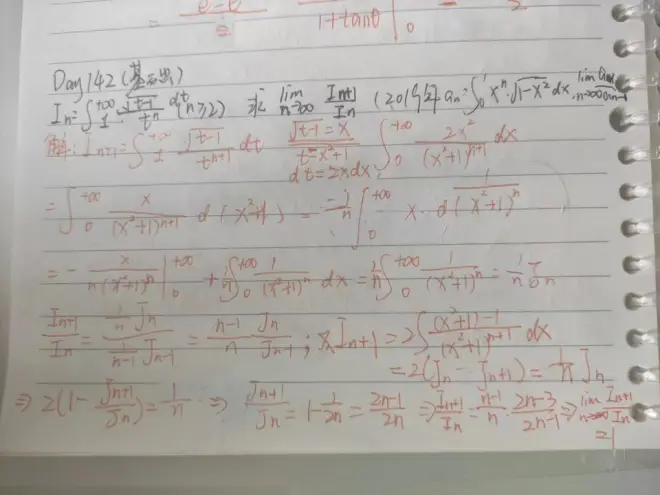 1+tanθ | 0
Day 142 (基础)
Iₙ = ∫₁^{+∞} √(t-1)/tⁿ dt (n≥2) 求 lim_{n→∞} Iₙ₊₁/Iₙ (2019年 aₙ = ∫₀¹ xⁿ·√(1-x²) dx, lim_{n→∞} aₙ/aₙ₋₁)
解: Iₙ₊₁ = ∫₁^{+∞} √(t-1)/tⁿ⁺¹ dt √(t-1) = x t = x²+1 dt = 2xdx ∫₀^{+∞} 2x²/(x²+1)ⁿ⁺¹ dx
= ∫₀^{+∞} x/(x²+1)ⁿ⁺¹ d(x²+1) = -1/n ∫₀^{+∞} x·d 1/(x²+1)ⁿ
= - x/n(x²+1)ⁿ |₀^{+∞} + 1/n ∫₀^{+∞} 1/(x²+1)ⁿ dx = 1/n ∫₀^{+∞} 1/(x²+1)ⁿ = 1/n Jₙ
Iₙ₊₁/Iₙ = (1/n Jₙ)/(1/(n-1) Jₙ₋₁) = (n-1)/n Jₙ/Jₙ₋₁; 又Iₙ₊₁ = 2∫ ((x²+1)-1)/(x²+1)ⁿ⁺¹ dx
= 2(Jₙ - Jₙ₊₁) = 1/n Jₙ
⇒ 2(1 - Jₙ₊₁/Jₙ) = 1/n ⇒ Jₙ₊₁/Jₙ = 1 - 1/2n = (2n-1)/2n ⇒ Iₙ₊₁/Iₙ = (n-1)/n · (2n-3)/(2n-1) ⇒ lim_{n→∞} Iₙ₊₁/Iₙ
= 1